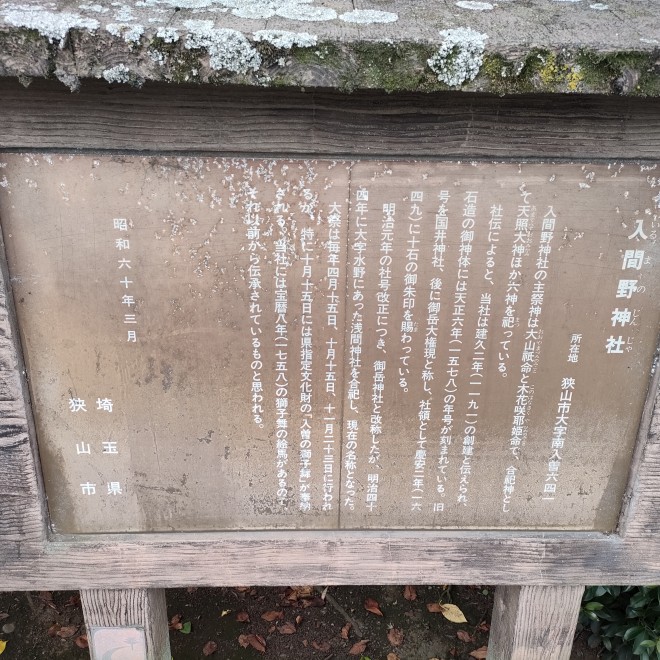 入間野神社
いるまのじんじゃ
所在地 狭山市大字南入曽六四二
入間野神社の主祭神は大山祇命と木花咲耶姫命で、合祀神とし
て天照大神ほか六神を祀っている。
社伝によると、当社は建久二年(一一九一)の創建と伝えられ、
石造の御神体には天正六年(一五七八)の年号が刻まれている。旧
号を国井神社、後に御岳大権現と称し、社領として慶安二年(一六
四九)に十石の御朱印を賜わっている。
明治元年の社号改正につき、御岳神社と改称したが、明治四十
四年に大字水野にあった浅間神社を合祀し、現在の名称となった。
大祭は毎年四月十五日、十月十五日、十一月二十三日に行われ
るが、特に十月十五日には県指定文化財の「入曽の獅子舞」が奉納
される。当社には宝暦八年(一七五八)の獅子舞の絵馬があるので、
それ以前から伝承されているものと思われる。
昭和六十年三月
埼玉県
狭山市